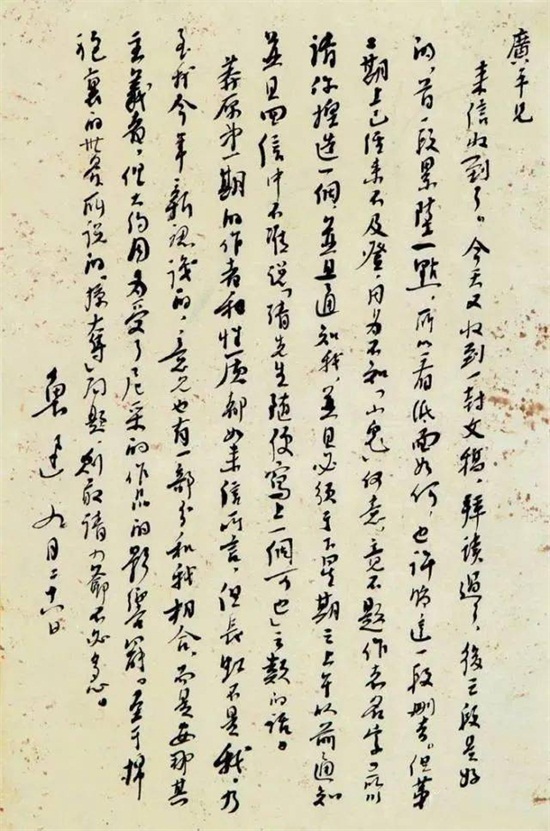 廣平兄
来信收到了。今天又收到一封文稿，拜讀過了，後三段是好
的，首一段累墜一點，所以看紙面如何，也許將這一段删去。但第
二期上已經来不及登，因为不知「小鬼」何意，竟不題作者名字。所以
請你揑造一個，並且通知我，並且必須于下星期三上午以前通知
並且回信中不准說「請先生随便寫上一個可也」之類的話。
莽原第一期的作者和性質都如来信所言，但長虹不是我，乃
是我今年新認識的，意見也有一部分和我相合，而是安那其
主義者，但大約因为受了尼采的作品的影響罷。至于棉
袍裏的世界所說的「掠奪」問題，則敢請少爺不必多心。
魯迅 月二十六日